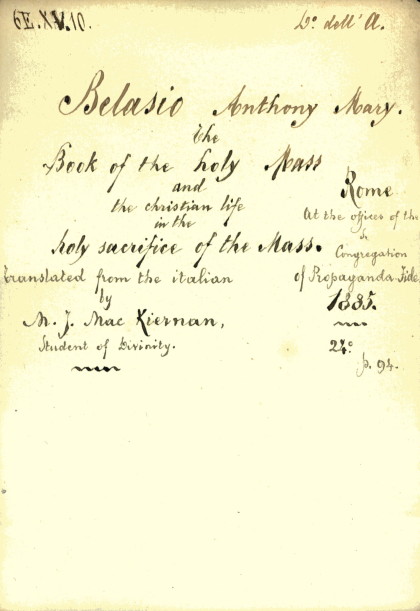 6E.XV.10.
Do dell' A.
Belasio Anthony Mary.
The
Book of the holy Mass
and
the christian life
in the
holy sacrifice of the Mass.
translated from the italian
by
M. J. Mac Kiernan,
Student of Divinity.
Rome
At the offices of the
S.
Congregation
of Propaganda Fide
1885.
24º
p. 94.